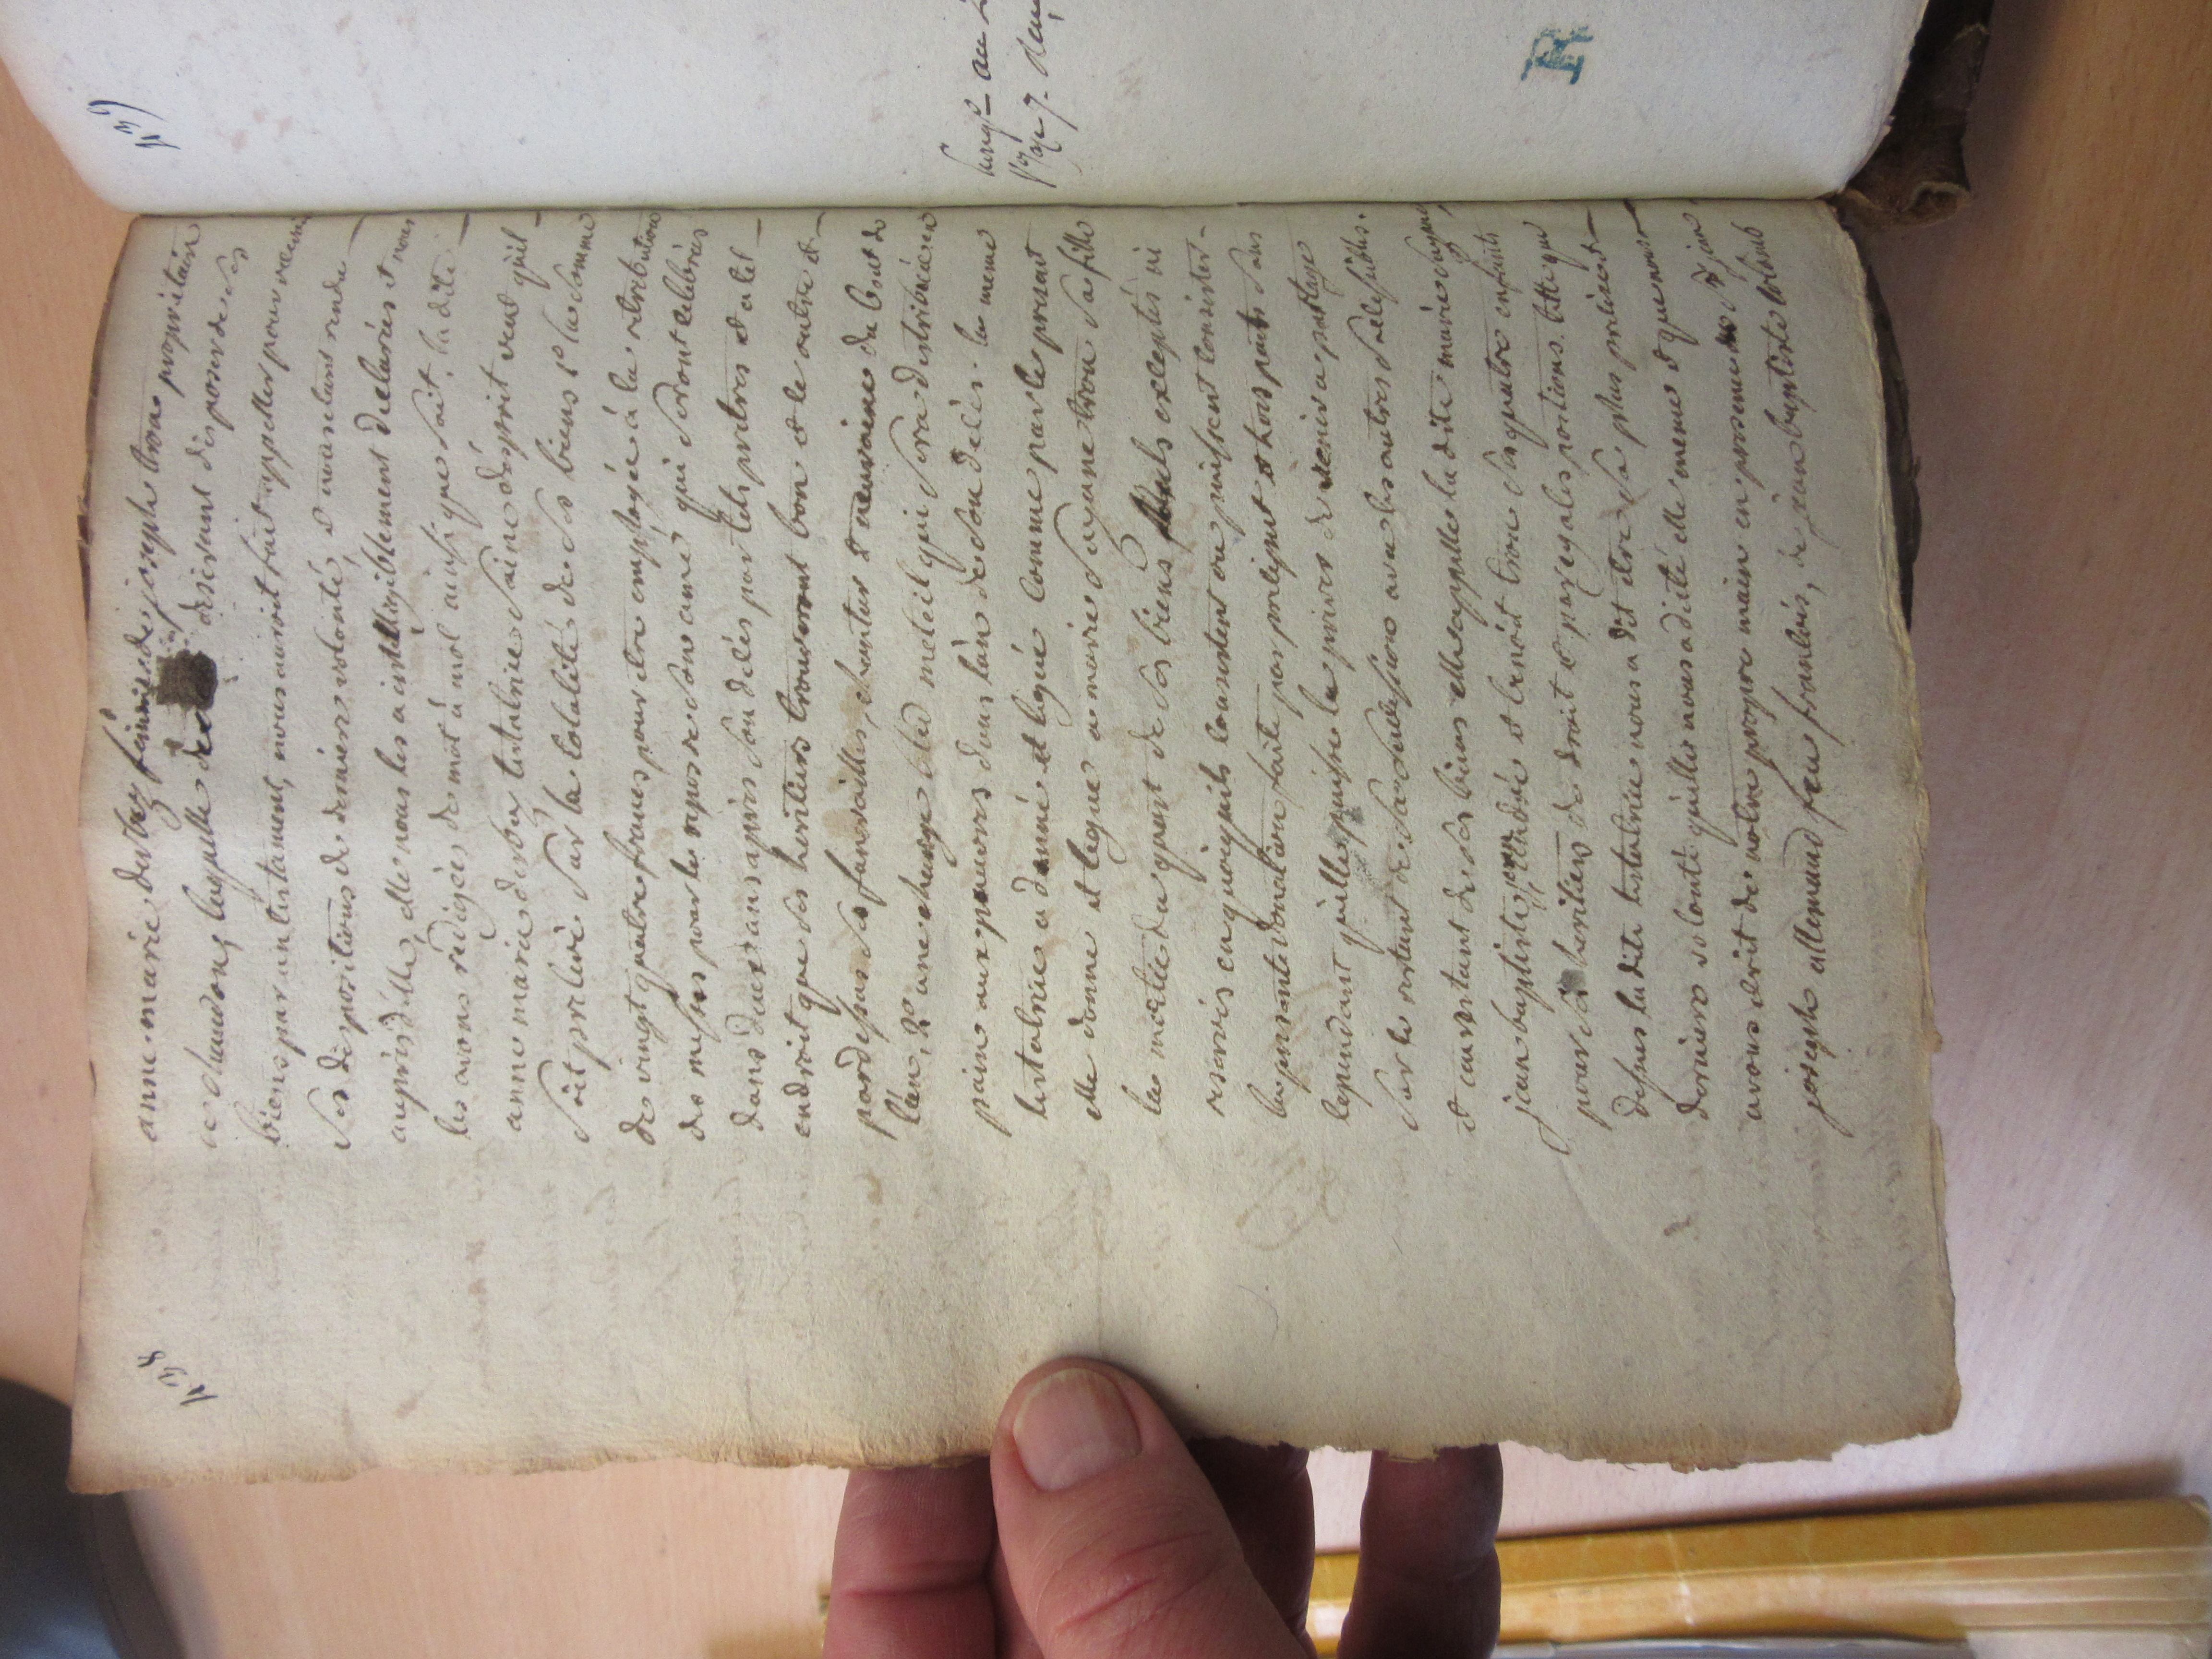 138
anne marie derbey femme de joseph tron propriétaire
a chaudons, laquelle desirant disposer de ses
biens par un testament, nous auroit fait appeller pour recevoir
ses dispositions de derniere volonté, et nous etant rendu
auprès d'elle, elle nous les a intelligiblement declarées et nous
les avons rédigées de mot à mot ainsi que suit. la dite
anne marie derbey testatrice saine d'esprit veut qu'il
soit prélevé sur la totalité de ses biens 1º la somme
de vingt quatre francs pour etre employée à la retribution
des messes pour le repos de son ame qui seront celebrées
dans deux ans après son délès par tels pretres et a tel
endroit que ses heritiers trouveront bon et le outre et
par dessus ses funerailles, chantar & neuvaine du bout de
l'an, 2º une charge bled meteil qui sera distribuée en
pain aux pauvres dans l'an de son délès. la meme
testatrice a donné et légué comme par le present
elle donne et legue a marie suzanne tron sa fille
la moitié du quart de ses biens exceptés ni
reservés en quoi qu'ils consistent ou puissent consister
la presente donation faite par preciput et hors part sans
cependant qu'elle puisse la priver de venir a partage
sur le restant de sa succession avec les autres successibles.
et au restant de ses biens elle appelle la dite marie suzanne,
jean baptiste, jean andré et benoit tron ses quatre enfants
pour ses heritiers de droit et par egales portions. telle que
dessus la dite testatrice nous a dit etre sa plus précise et
derniere volonté qu'elle nous a dicté elle meme et que nous
avons ecrit de notre propre main en presence de jean
joseph allemand feu françois, de jean baptiste roland
139
R